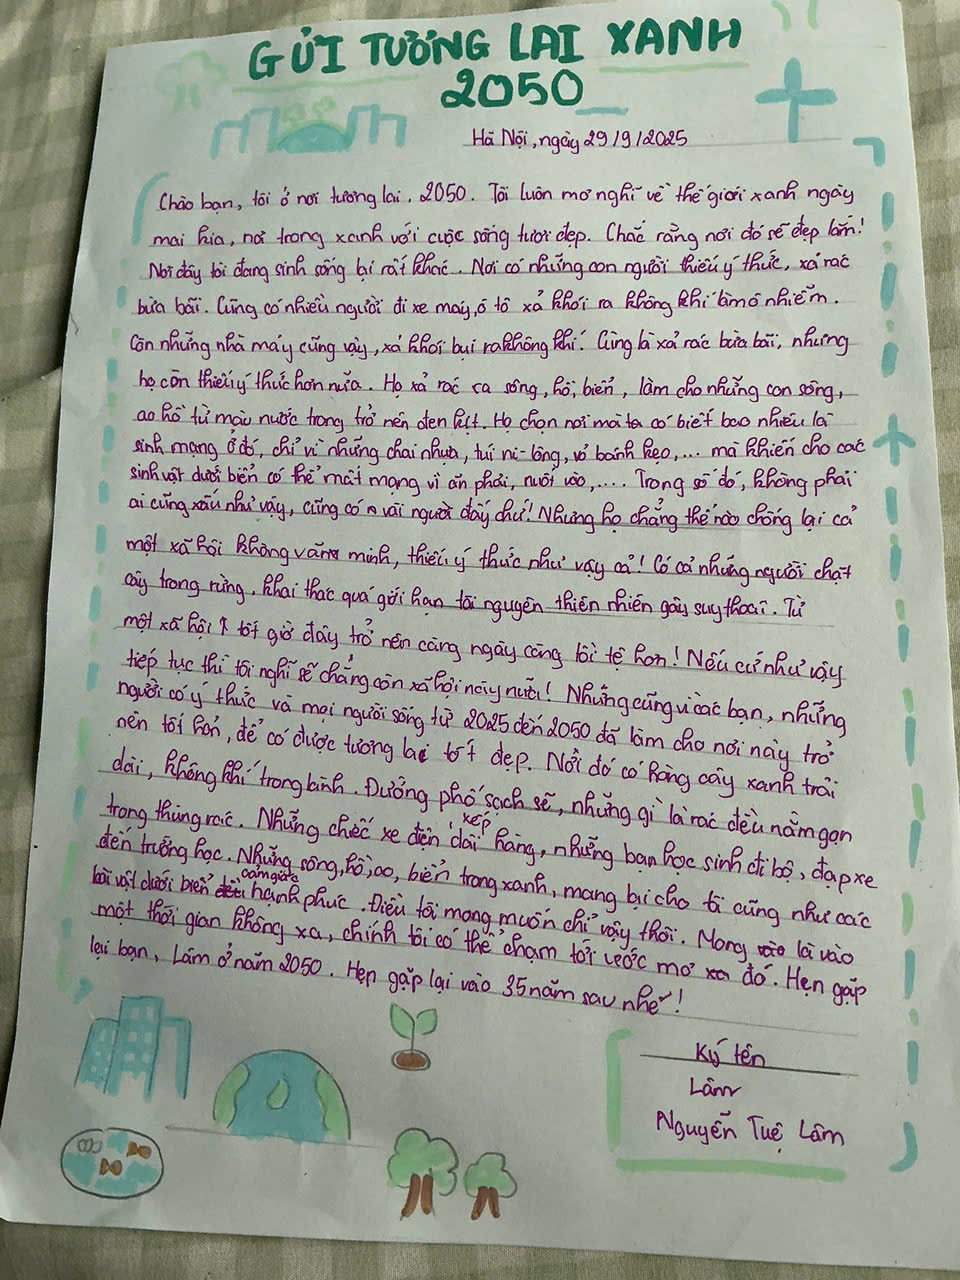 GỬI TƯƠNG LAI XANH
2050
Hà Nội, ngày 29/9/2025
Chào bạn, tôi ở nơi tương lai, 2050. Tôi luôn mơ nghĩ về thế giới xanh ngày
mai kia, nơi trong xanh với cuộc sống tươi đẹp. Chắc rằng nơi đó sẽ đẹp lắm!
Nơi đây tôi đang sinh sống lại rất khác. Nơi có những con người thiếu ý thức, xả rác
bừa bãi. Cũng có nhiều người đi xe máy, ô tô xả khói ra không khí làm ô nhiễm.
Còn những nhà máy cũng vậy, xả khói bụi ra không khí. Cũng là xả rác bừa bãi, nhưng
họ còn thiếu ý thức hơn nữa. Họ xả rác ra sông, hồ, biển, làm cho những con sông,
ao hồ từ màu nước trong trở nên đen kịt. Họ chọn nơi mà ta có biết bao nhiêu là
sinh mạng ở đó, chỉ vì những chai nhựa, túi ni-lông, vỏ bánh kẹo,... mà khiến cho các
sinh vật dưới biển có thể mất mạng vì ăn phải, nuốt vào,.... Trong số đó, không phải
ai cũng xấu như vậy, cũng có vài người đấy chứ! Nhưng họ chẳng thế nào chống lại cả
một xã hội không văn minh, thiếu ý thức như vậy cả! Có cả những người chặt
cây trong rừng, khai thác quá giới hạn tài nguyên thiên nhiên gây suy thoái. Từ
một xã hội tốt giờ đây trở nên càng ngày càng tồi tệ hơn! Nếu cứ như vậy
tiếp tục thì tôi nghĩ sẽ chẳng còn xã hội này nữa! Nhưng cũng vì các bạn, những
người có ý thức và mọi người sống từ 2025 đến 2050 đã làm cho nơi này trở
nên tốt hơn, để có được tương lai tốt đẹp. Nơi đó có hàng cây xanh trải
dài, không khí trong lành. Đường phố sạch sẽ, những gì là rác đều nằm gọn
trong thùng rác. Những chiếc xe điện xếp dài hàng, những bạn học sinh đi bộ, đạp xe
đến trường học. Những sông, hồ, ao, biển trong xanh, mang lại cho ta cũng như các
loài vật dưới biển cảm giác hạnh phúc. Điều tôi mong muốn chỉ vậy thôi. Mong là vào
một thời gian không xa, chính tôi có thể chạm tới ước mơ đó. Hẹn gặp
lại bạn, Lâm ở năm 2050. Hẹn gặp lại vào 35 năm sau nhé!
Ký tên
Lâm
Nguyễn Tuệ Lâm